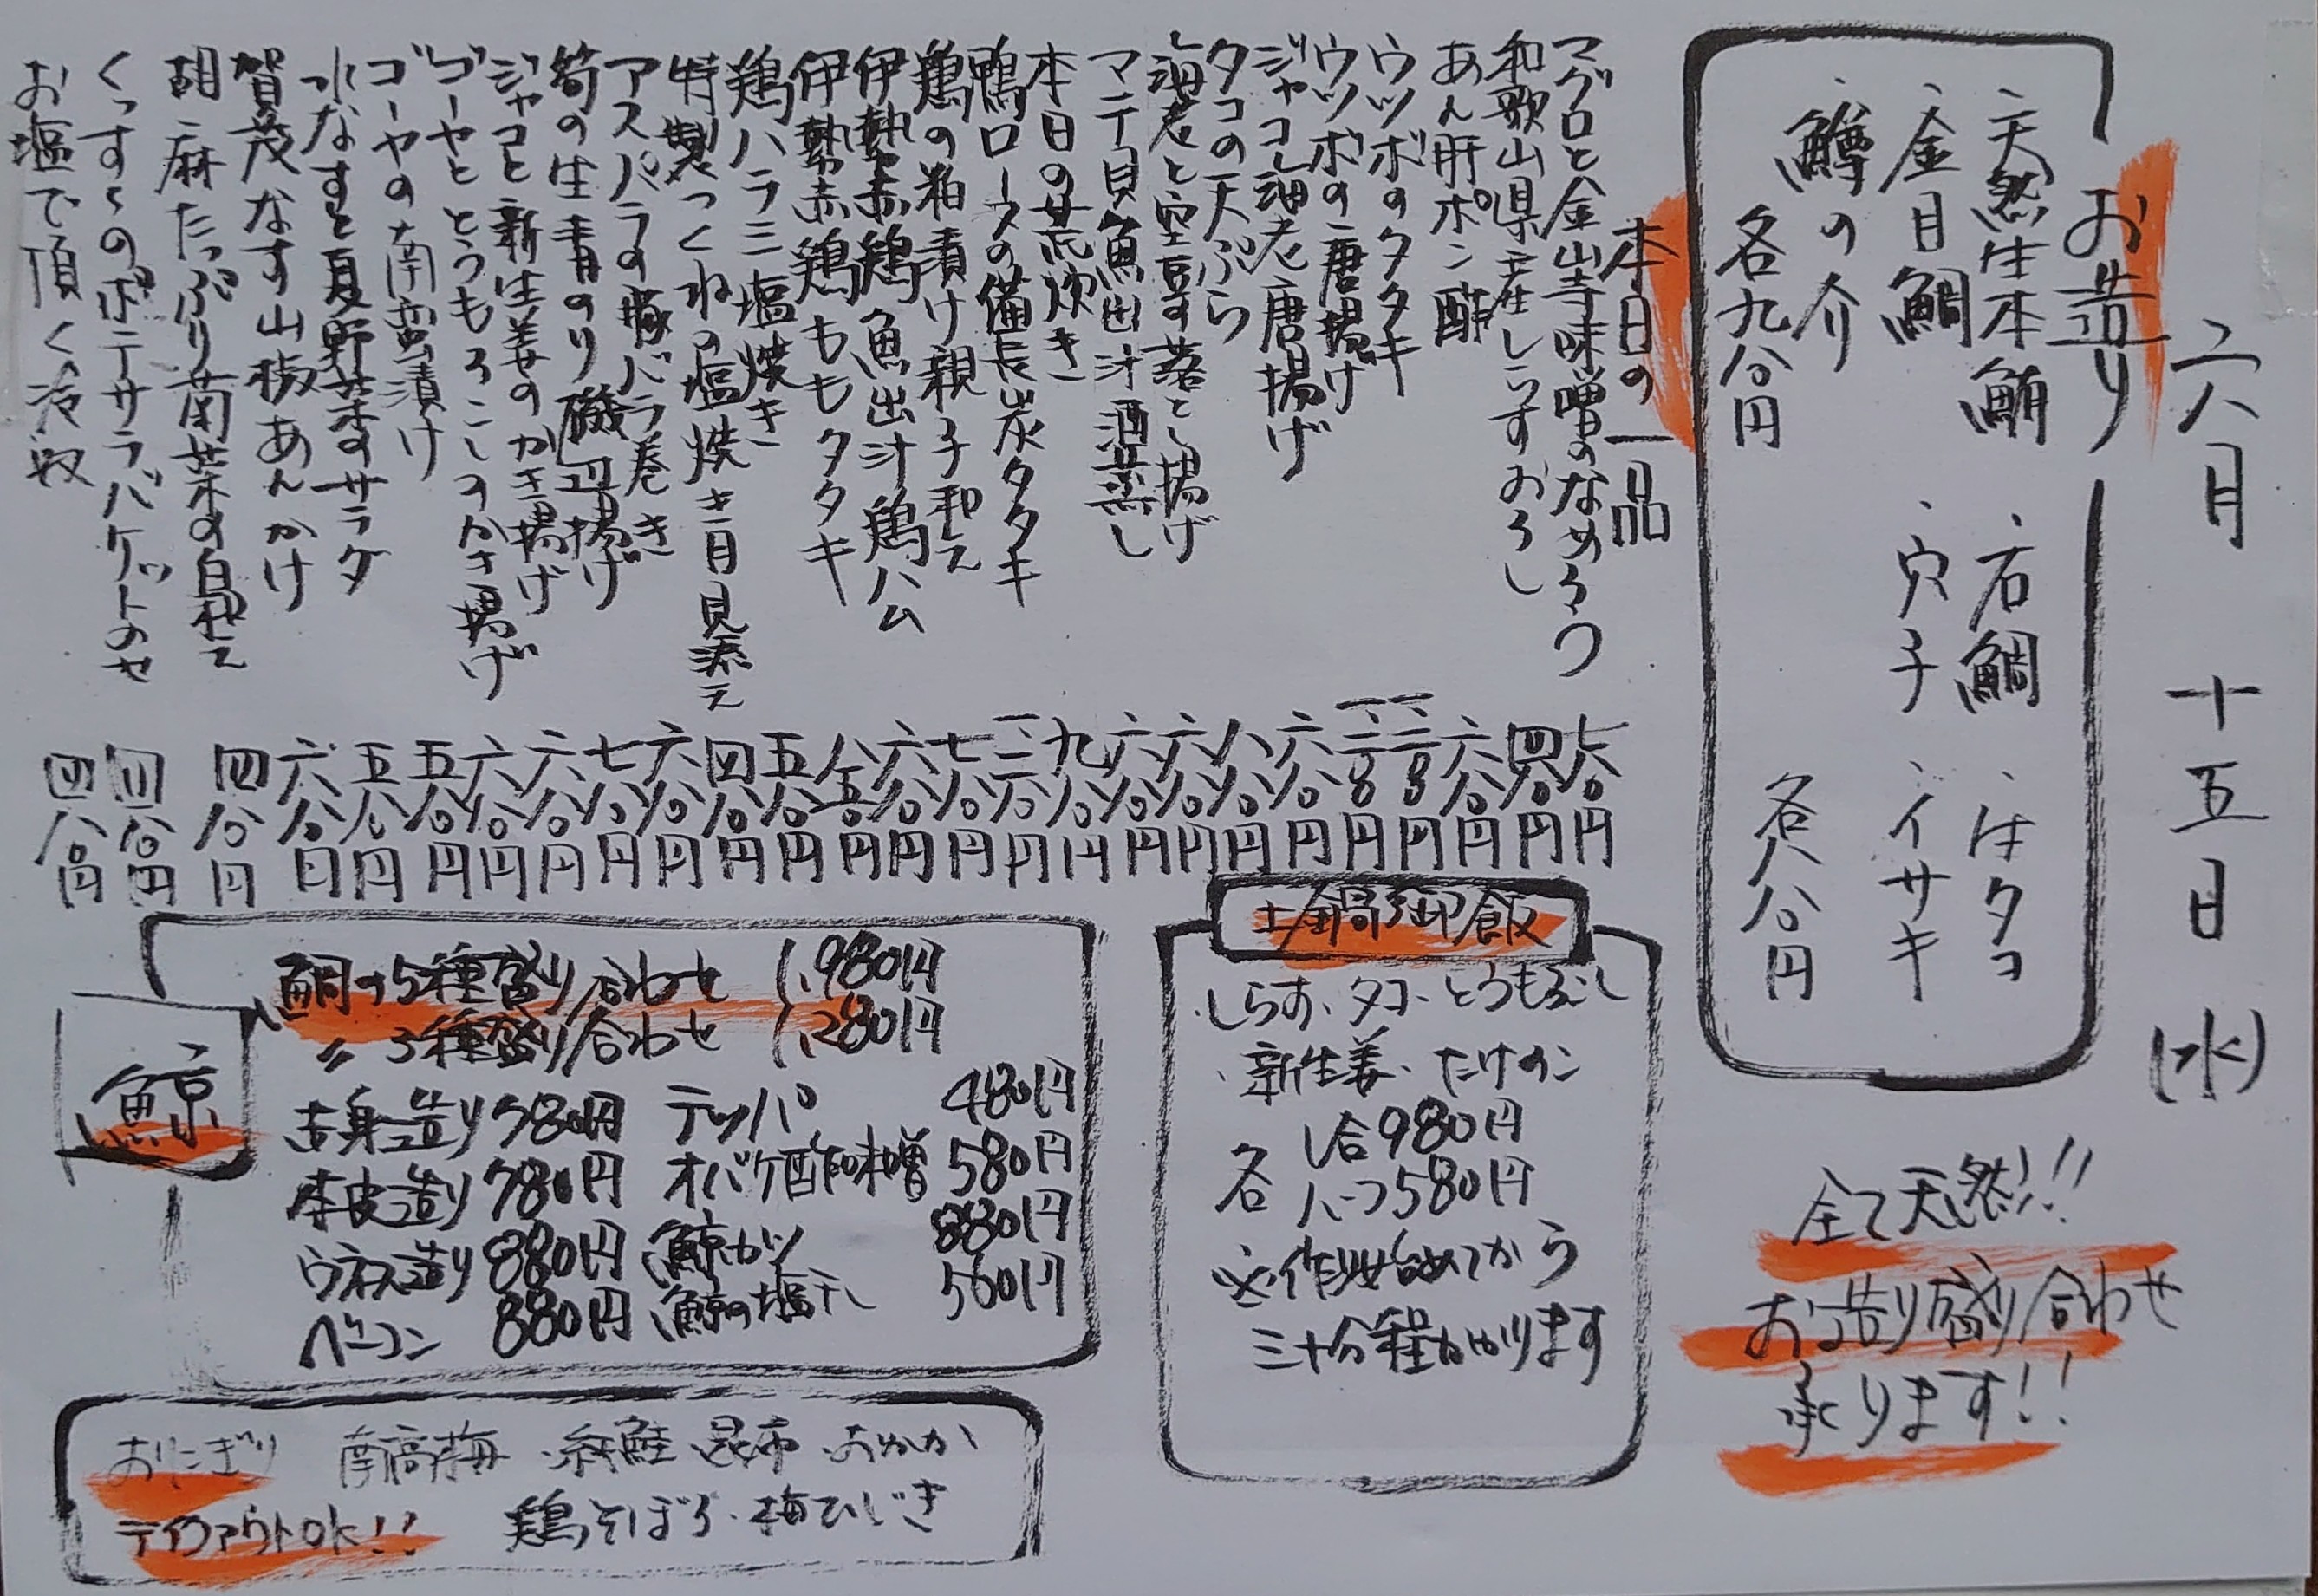 六月 十五日 (水)
お造り
・天然生本鮪 ・石鯛 ・生タコ
・金目鯛 ・穴子 ・イサキ
・鱒の介
各九八〇円 各八八〇円
全て天然!!
お造り盛り合わせ
承ります!!
本日の一品
マグロと金山寺味噌のなめろう 七八〇円
和歌山県産しらすおろし 四八〇円
あん肝ポン酢 六八〇円
ウツボのタタキ
ウツボの唐揚げ
ジャコ海老唐揚げ 六八〇円
タコの天ぷら 八八〇円
海老と空豆落とし揚げ 六八〇円
マテ貝魚出汁酒蒸し 六八〇円
本日の荒炊き 九八〇円
鴨ロースの備長炭タタキ
鶏の粕漬け親子和え 七八〇円
伊勢赤鶏魚出汁鶏ハム 六八〇円
伊勢赤鶏ももタタキ
鶏ハラミ塩焼き 五八〇円
特製つくねの塩焼き月見添え 四八〇円
アスパラの豚バラ巻き 六八〇円
筍の生青のり磯辺揚げ 七八〇円
ジャコと新生姜のかき揚げ 六八〇円
ゴーヤととうもろこしのかき揚げ 六八〇円
ゴーヤの南蛮漬け 五八〇円
水なすと夏野菜のサラダ 五八〇円
賀茂なす山椒あんかけ 六八〇円
胡麻たっぷり菊菜の白和え 四八〇円
くっすくのポテサラバケットのせ 四八〇円
お塩で頂く冷奴 四八〇円
土鍋御飯
・しらす・タコ・とうもろこし
・新生姜・たけのこ
各 1合980円
ハーフ580円
※作り始めてから
三十分程かかります
鯨
鯨の5種盛り合わせ 1,980円
〃 3種盛り合わせ 1,280円
赤身造り 780円 テッパ 480円
本皮造り 780円 オバケ酢味噌 580円
ウネス造り 880円 鯨カツ 880円
ベーコン 880円 鯨の塩干し 580円
おにぎり 南高梅・紅鮭・昆布・おかか
テイクアウトOK!! 鶏そぼろ・梅ひじき